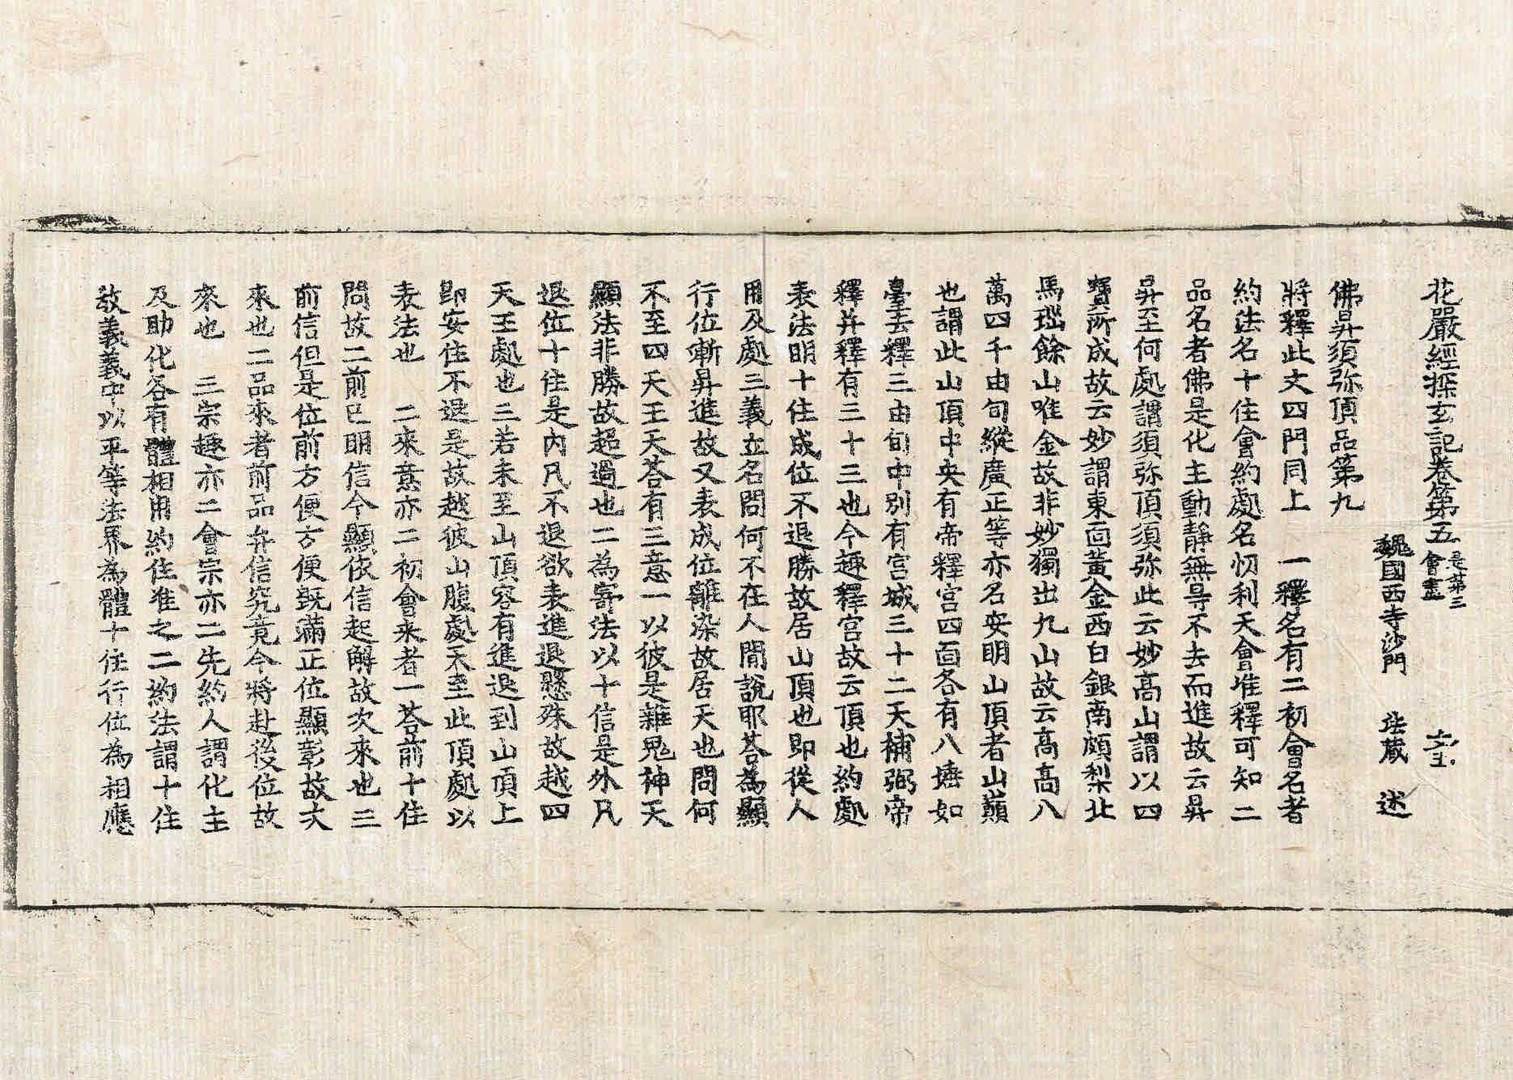 花嚴經探玄記卷第五 是第三會盡
魏國西寺沙門 法蔵 述
佛昇須弥頂品第九
將釋此文四門同上 一釋名有二初會名者
約法名十住會約處名忉利天會准釋可知二
品名者佛是化主動靜無㝵不去而進故云昇
昇至何處謂須弥頂須弥此云妙高山謂以四
寶所成故云妙謂東面黃金西白銀南頗梨北
馬瑙餘山唯金故非妙獨出九山故云高高八
萬四千由旬縱廣正等亦名安明山頂者山巔
也謂此山頂中央有帝釋宮四面各有八塘如
臺去釋三由旬中別有宮城三十二天補弼帝
釋并釋有三十三也今趣釋宮故云頂也約處
表法明十住成位不退勝故居山頂也即從人
用及處三義立名問何不在人間說耶荅為顯
行位漸昇進故又表成位離染故居天也問何
不至四天王天荅有三意一以彼是雜鬼神天
顯法非勝故超過也二為寄法以十信是外凡
退位十住是內凡不退欲表進退懸殊故越四
天王處也三若未至山頂容有進退到山頂上
即安住不退是故越彼山腹處天至此頂處以
表法也 二來意亦二初會来者一荅前十住
問故二前已明信今顯依信起解故次來也三
前信但是位前方便方便既滿正位顯彰故次
來也二品來者前品弁信究竟今將赴後位故
來也 三宗趣亦二會宗亦二先約人謂化主
及助化各有體相用約住准之二約法謂十住
教義義中以平等法界為體十住行位為相應